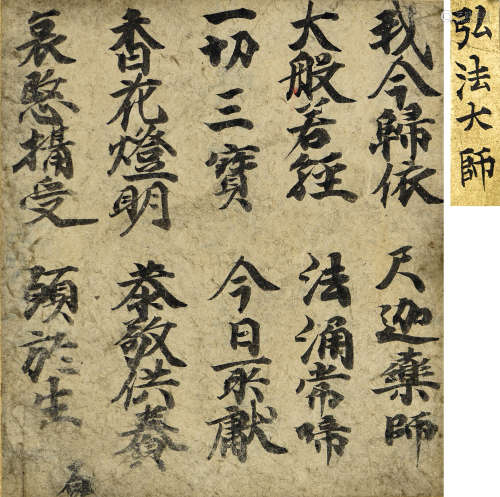 弘法大師
我今歸依 尺迦藥師
大般若経 法涌常啼
一切三寳 今日所獻
香花燈明 恭敬供養
哀愍攝受 須於生